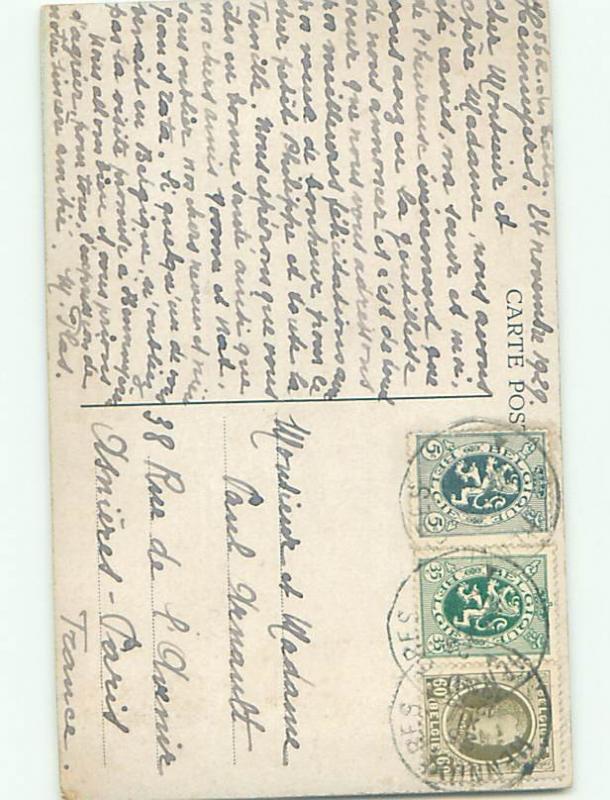 Hennuyères. 24 novembre 1929.
Cher Monsieur et
chère Madame, nous avons
été ravies, ma sœur et moi,
de l'heureux événement que
vous avez eu la gentillesse
de nous annoncer et c'est de tout
cœur que nous vous adressons
nos meilleures félicitations
nos vœux de bonheur pour le
cher petit Philippe et toute la
famille. Nous espérons que vous
êtes en bonne santé ainsi que
nos chers amis Yvonne et
sans oublier nos chers
Jean et Zata. Si quelqu'un de vous
venait en Belgique, n'oubliez
pas la visite promise à Hennuyères
Nous allons bien et vous prions
d'agréer, pour tous, l'expression de
notre sincère amitié.
M. Plas.
CARTE POST
Monsieur et Madame
Paul Arnault
38 Rue de l'Avenir
Asnières - Paris
France.
5 BELGIQUE BELGIË 5
35 BELGIQUE BELGIË 35
60 BELGIQUE BELGIË 60